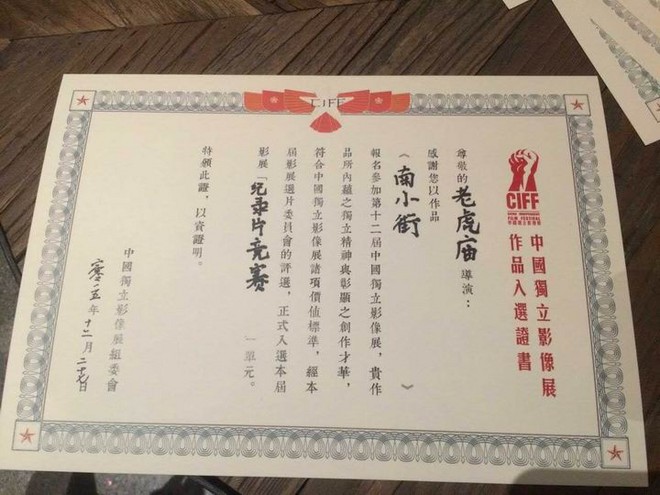 CIFF
CIFF
CHINA INDEPENDENT
FILM FESTIVAL
中國獨立影像展
中國獨立影像展
作品入選證書
尊敬的老虎庙導演：
感謝您以作品
《南小街》
報名參加第十二屆中國獨立影像展，貴作
品所內蘊之獨立精神與彰顯之創作才華，
符合中國獨立影像展諸項價值標準，經本
屆影展選片委員會的評選，正式入選本屆
影展「纪录片竞赛」單元。
特頒此證，以資證明。
中國獨立影像展組委會
零一五年十二月二十九日